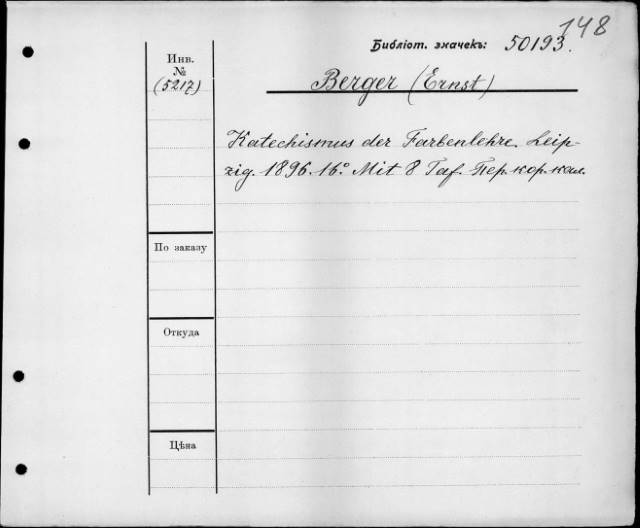 148
Библіот. значекъ: 50193.
Инв.
№
(5217)
Berger (Ernst)
Katechismus der Farbenlehre. Leip-
zig. 1896. 16° Mit 8 Taf. Пер. кор. кол.
По заказу
Откуда
Цѣна